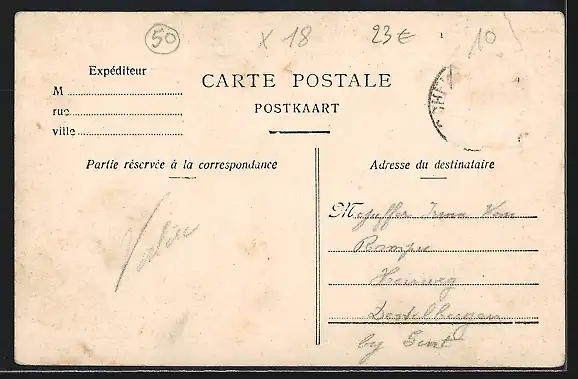 50
X 18
23€
10
Expéditeur
CARTE POSTALE
M
POSTKAART
rue
ville
Partie réservée à la correspondance
Adresse du destinataire
Mejuffer Irma Van
Heirweg
Destelbergen
by Gent